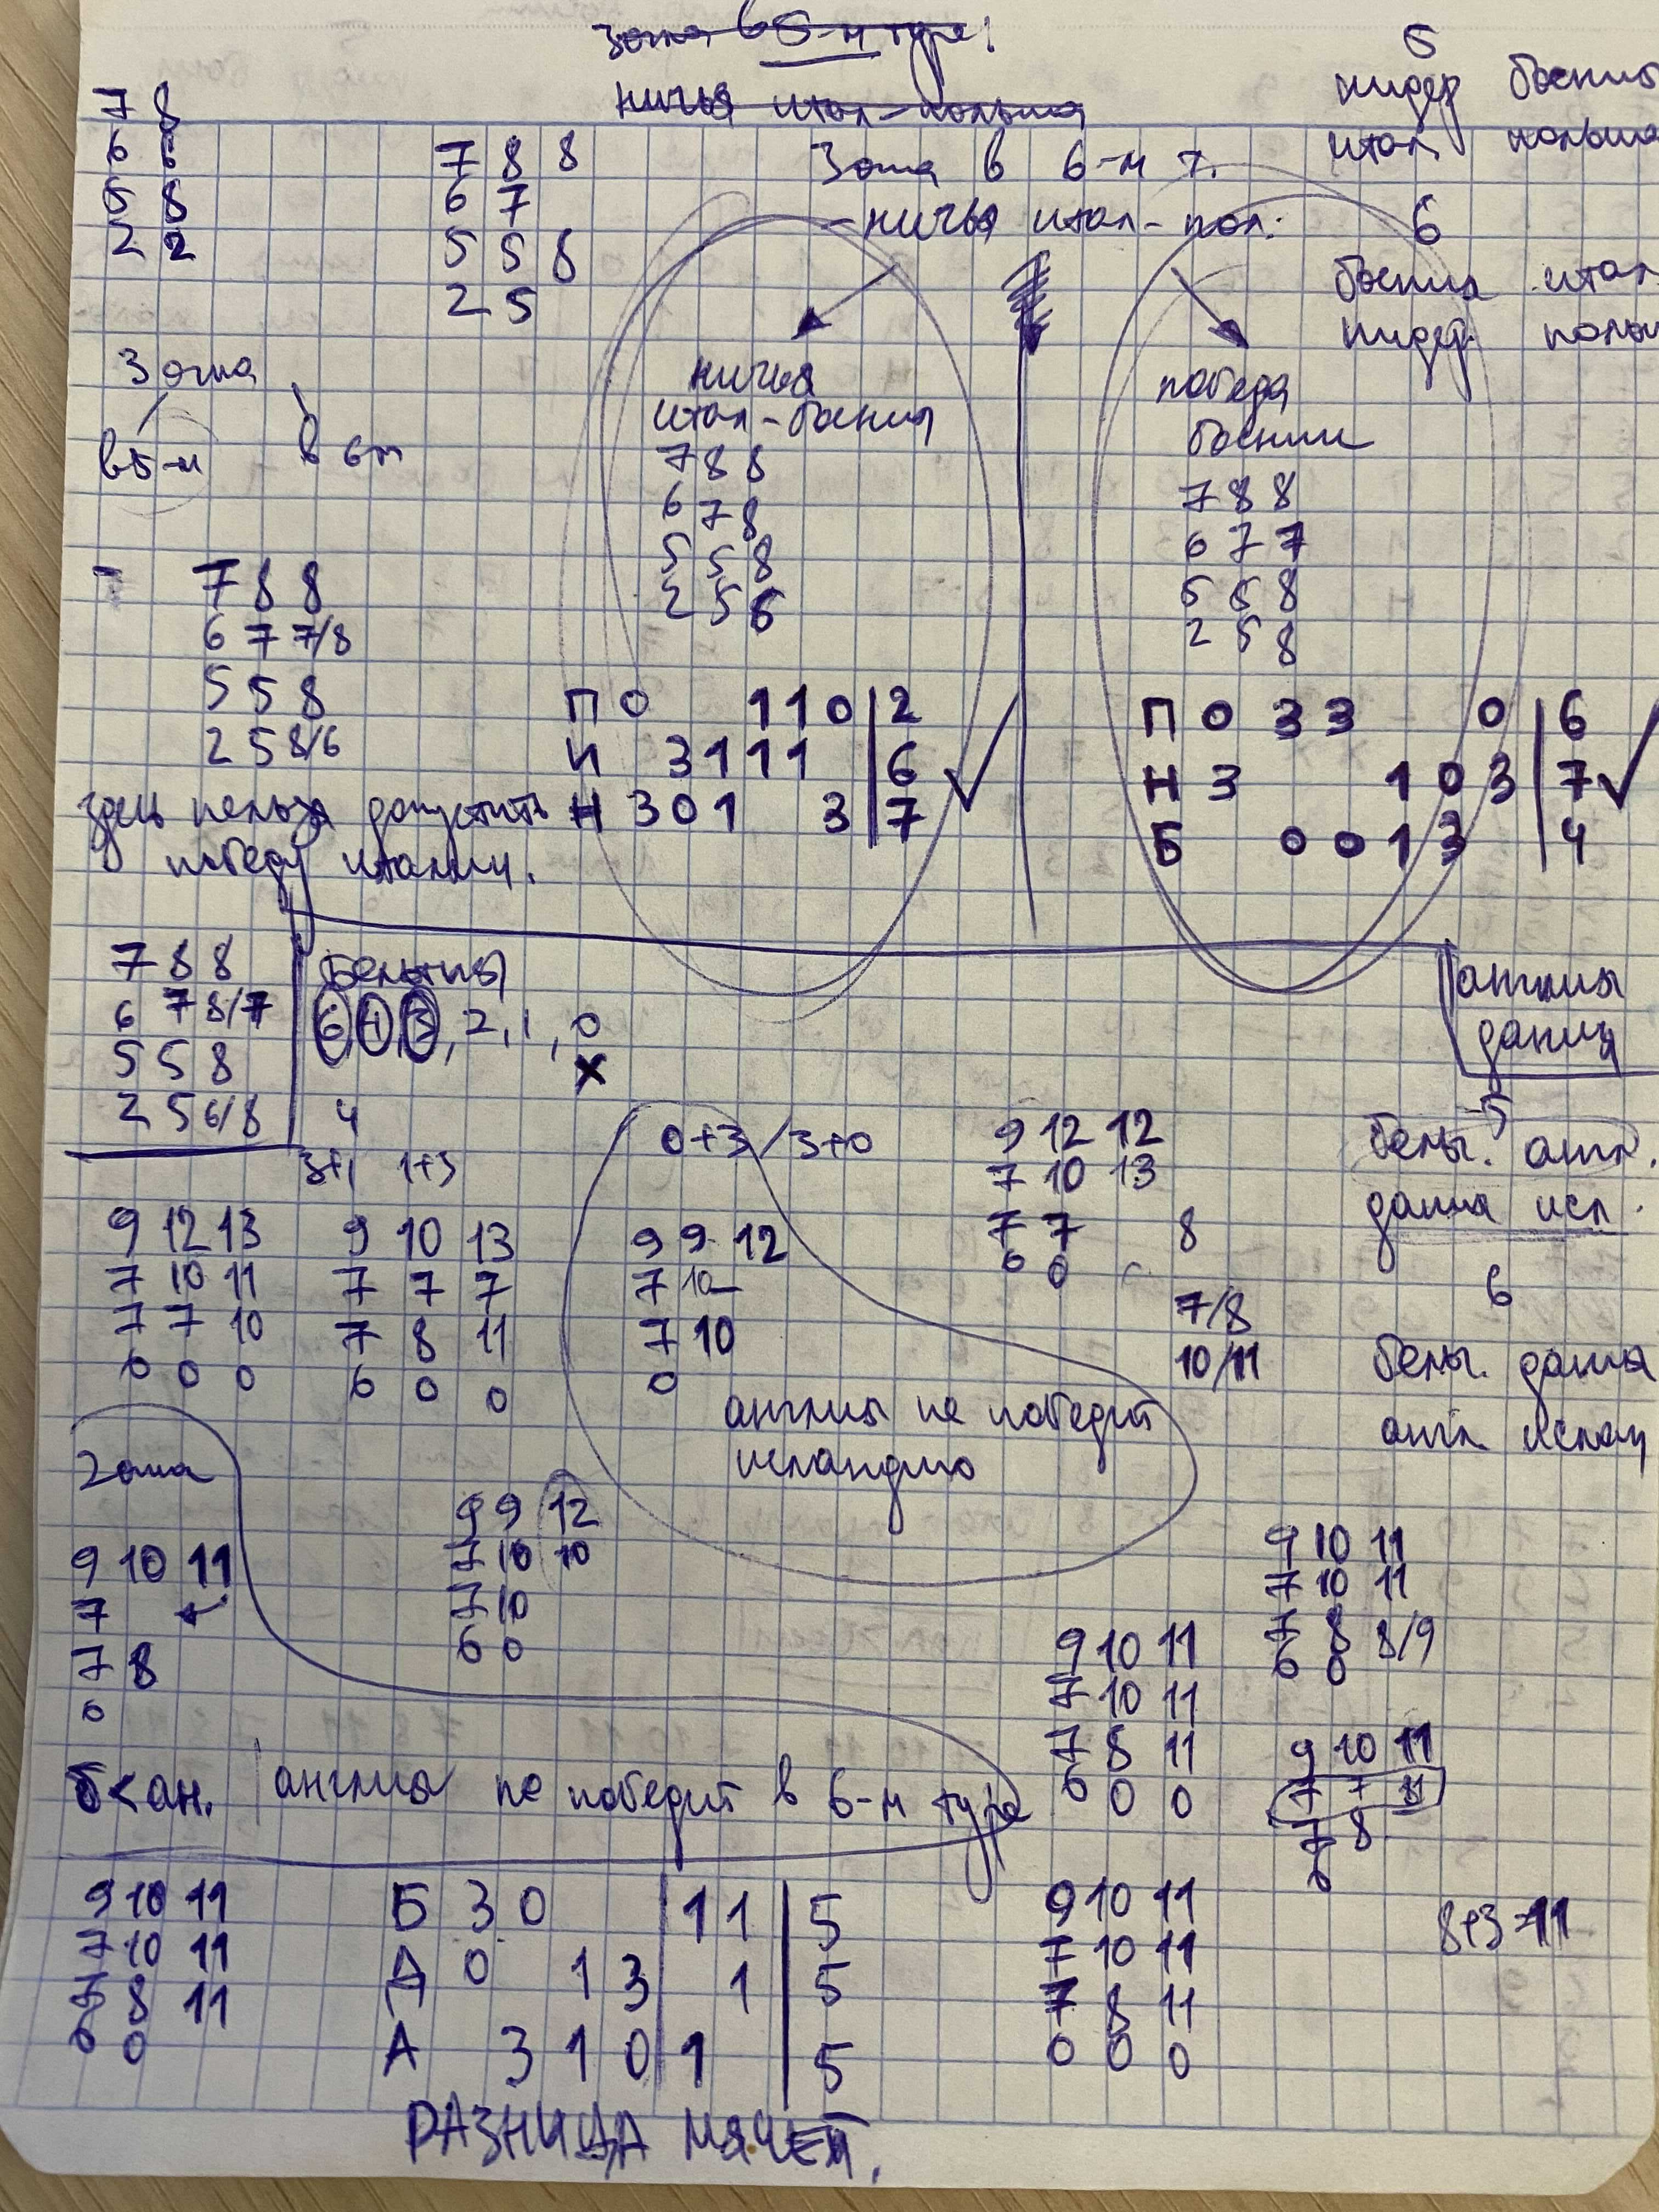 Зона в 5-м туре:
ничья итал-польша
5
нидер босния
итал польша
7 8
6 6
5 8
2 2
7 8 8
6 7
5 5 8
2 5
Зона в 6-м т.
-ничья итал-пол.
6
босния итал
нидер польш
Зона
в 5-м в 6м
ничья
итал-босния
7 8 8
6 7 8
5 5 8
2 5 6
победа
боснии
7 8 8
6 7 7
5 5 8
2 5 8
7 8 8
6 7 7/8
5 5 8
2 5 8/6
здесь нельзя допустить
победу италии.
П 0 1 1 0 | 2
И 3 1 1 1 | 6
Н 3 0 1 3 | 7
П 0 3 3 0 | 6
Н 3 1 0 3 | 7
Б 0 0 1 3 | 4
7 8 8
6 7 8/7
5 5 8
2 5 6/8
Бельгия
6, 4, 3, 2, 1, 0
х
4
3+1 1+3
англия
дания
0+3/3+0
9 12 12
7 10 13
7 7 8
6 0
5
бельг. англ.
дания исл.
6
бельг. дания
англ ислан
7/8
10/11
9 12 13
7 10 11
7 7 10
6 0 0
9 10 13
7 7 7
7 8 11
6 0 0
9 9 12
7 10
7 10
0
англия не победит
исландию
2 очка
9 10 11
7
7 8
0
9 9 12
7 10 10
7 10
6 0
9 10 11
7 10 11
7 8 8/9
6 0
9 10 11
7 10 11
7 8 11
6 0 0
9 10 11
7 7 11
7 8
6
б<ан. англия не победит в 6-м туре
9 10 11
7 10 11
7 8 11
6 0
Б 3 0 1 1 | 5
Д 0 1 3 1 | 5
А 3 1 0 1 | 5
9 10 11
7 10 11
7 8 11
0 0 0
8+3=11
РАЗНИЦА МЯЧЕЙ.